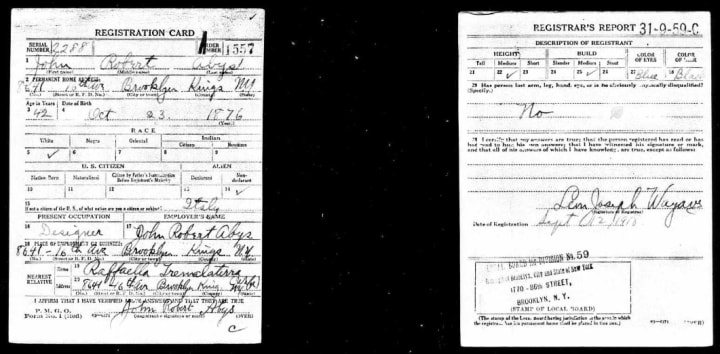 REGISTRATION CARD
SERIAL NUMBER 2288
ORDER NUMBER 1557
1 John Robert Abys
(First name) (Middle name) (Last name)
2 PERMANENT HOME ADDRESS:
8641 Ave Brooklyn Kings NY
(No.) (Street or R. F. D. No.) (City or town) (County) (State)
Age in Years Date of Birth
3 42 4 Oct 23 1876
(Month) (Day) (Year)
RACE
White Negro Oriental Indian
Citizen Noncitizen
5 ✓ 6 7 8 9
U. S. CITIZEN ALIEN
Native Born Naturalized Citizen by Father's Naturalization Before Registrant's Majority Declarant Non-declarant
10 11 12 13 14 ✓
15 Italy
If not a citizen of the U. S., of what nation are you a citizen or subject?
PRESENT OCCUPATION EMPLOYER'S NAME
16 Designer 17 John Robert Abys
18 PLACE OF EMPLOYMENT OR BUSINESS:
8641 - Ave Brooklyn Kings NY
(No.) (Street or R. F. D. No.) (City or town) (County) (State)
NEAREST RELATIVE
Name 19 Raffaella
Address 20 Ave Brooklyn Kings
(No.) (Street or R. F. D. No.) (City or town) (County) (State)
I AFFIRM THAT I HAVE VERIFIED ABOVE ANSWERS AND THAT THEY ARE TRUE
P. M. G. O.
Form No. 1 (Red) John Robert Abys
(Registrant's signature or mark) (OVER)
C
REGISTRAR'S REPORT 31-9-59-C
DESCRIPTION OF REGISTRANT
HEIGHT BUILD COLOR OF EYES COLOR OF HAIR
Tall Medium Short Slender Medium Stout
21 22 ✓ 23 24 25 ✓ 26 27 Blue 28
29 Has person lost arm, leg, hand, eye, or is he obviously physically disqualified?
(Specify.)
No
30 I certify that my answers are true; that the person registered has read or has
had read to him his own answers; that I have witnessed his signature or mark,
and that all of his answers of which I have knowledge are true, except as follows:
Leon Joseph
(Signature of Registrar)
Date of Registration Sept 12 1918
LOCAL BOARD DIVISION No. 59
CITY AND STATE OF NEW YORK
86th STREET,
BROOKLYN, N. Y.
(STAMP OF LOCAL BOARD)
(The stamp of the Local Board having jurisdiction of the area in which
the registrant has his permanent home shall be placed in this box.)
(OVER)